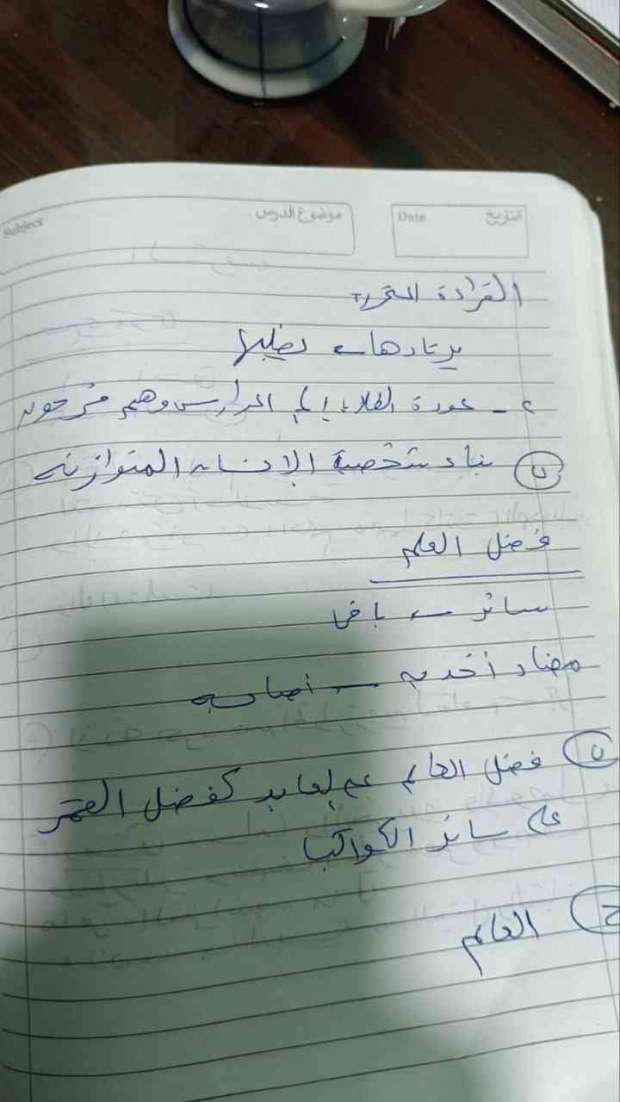 Subject موضوع الدرس Date التاريخ
القراءة المتحررة
يرتادها ← يطلبها
٢ - عودة الطلاب إلى المدارس وهم فرحون
بناء شخصية الإنسان المتوازنة
فضل العلم
سائر ← باقي
مضاد أخذ به ←
فضل العالم على العابد كفضل القمر
على سائر الكواكب
العالم